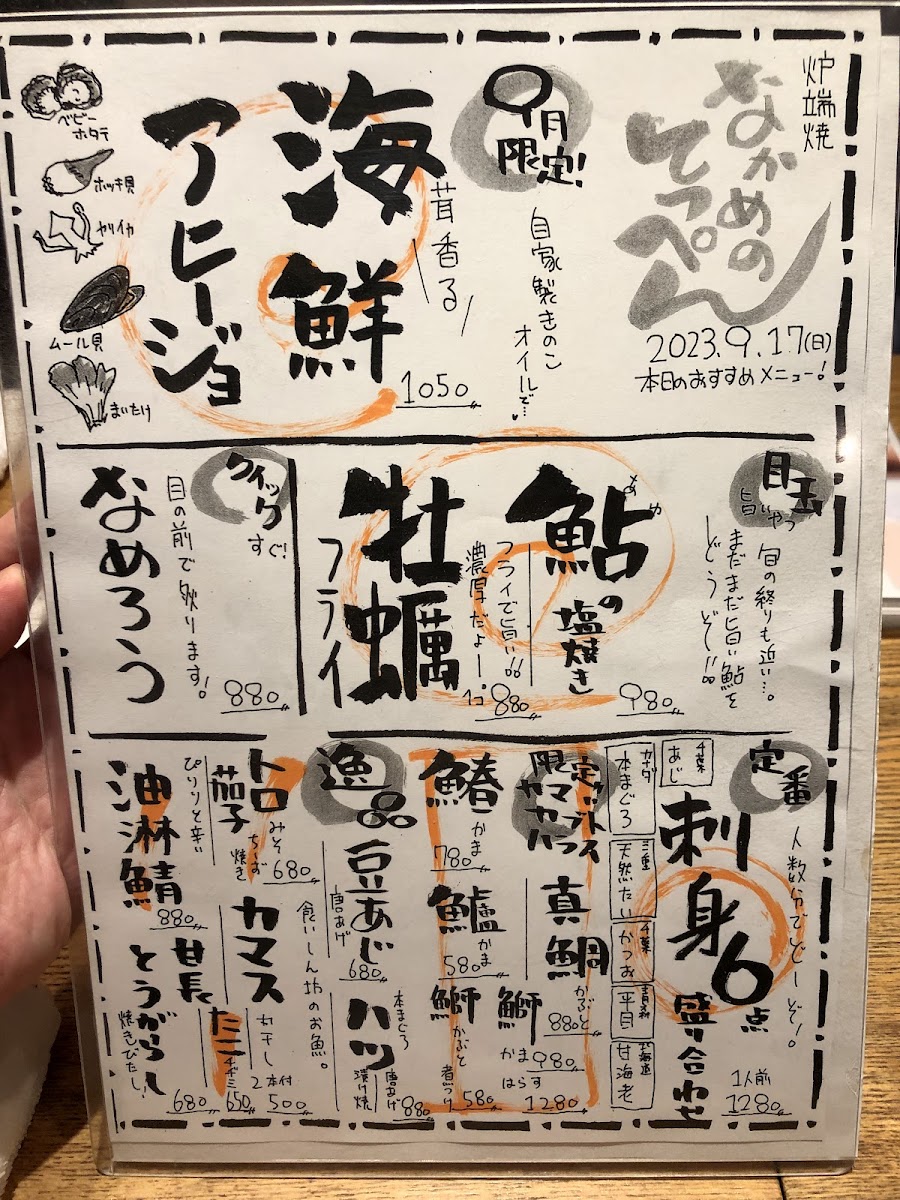 炉端焼
なかめのてっぺん
2023.9.17(日)
本日のおすすめメニュー!
9月限定!
自家製きのこ
オイルで…
茸香る
海鮮
アヒージョ
1050
ベビーホタテ
ホッキ貝
ヤリイカ
ムール貝
まいたけ
目玉
旨いやつ
旬の終りも近い…。
まだまだ旨い鮎を
どうぞー!!
あゆ
鮎の塩焼き
980
牡蠣
フライ
フライで旨い!!
濃厚だよー!
1コ
880
クイック
すぐ!
目の前で炙ります!
なめろう
880
定番
人数分でどーぞ!
刺身6点
盛り合わせ
1人前
1280
千葉
あじ
カナダ
本まぐろ
三重
天然たい
千葉
かつお
青森
平目
北海道
甘海老
限定
カマカブトハラス
真鯛
かぶと
880
鰤
かま
980
はらす
1280
鰆
かま
780
鱸
かま
580
鰤
かぶと
煮つけ
580
逸品
豆あじ
唐あげ
680
本まぐろ
ハツ
唐あげ
漬け焼
880
トロ茄子
みそちーず
焼き
680
食いしん坊のお魚。
カマス
丸干し
2本付
500
ぴりりと辛い
油淋鯖
880
タニ
チヂミ
650
甘長とうがらし
焼きびたし!
680